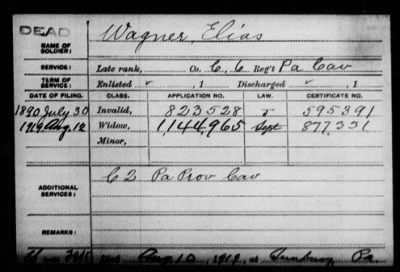 DEAD
NAME OF SOLDIER: Wagner, Elias
SERVICE: Late rank, Co. C, 6 Reg't Pa Cav
TERM OF SERVICE: Enlisted , 1 Discharged , 1
DATE OF FILING. CLASS. APPLICATION NO. LAW. CERTIFICATE NO.
1890 July 30 Invalid, 823528 595391
1919 Aug. 12 Widow, 1144965 Sept 877331
Minor,
ADDITIONAL SERVICES: C 2 Pa Prov Cav
REMARKS:
Aug 10, 1919, at Sunbury Pa.